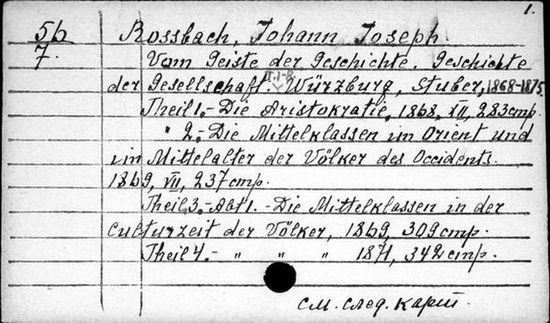 1.
56
7.
Rossbach, Johann Joseph
Vom Geiste der Geschichte. Geschichte
der Gesellschaft. T.1-8. Würzburg, Stuber, 1868-1875
Theil 1.- Die Aristokratie, 1868, VII, 283 стр.
" 2.- Die Mittelklassen im Orient und
im Mittelalter der Völker des Occidents.
1869, VII, 237 стр.
Theil 3.- Abt 1. - Die Mittelklassen in der
Culturzeit der Völker, 1869, 309 стр.
Theil 4.- " " " 1871, 342 стр.
см. след. карт.